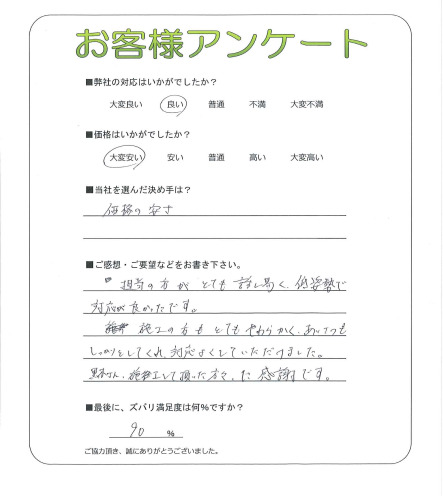 お客様アンケート
■弊社の対応はいかがでしたか?
大変良い 良い 普通 不満 大変不満
■価格はいかがでしたか?
大変安い 安い 普通 高い 大変高い
■当社を選んだ決め手は?
価格の安さ
■ご感想・ご要望などをお書き下さい。
担当の方が とても 話し易く、低姿勢で
対応が良かったです。
施工の方も とても やわらかく、あいさつも
しっかりとしてくれ、対応よくしていただけました。
して頂いた方々、 感謝です。
■最後に、ズバリ満足度は何%ですか?
90 %
ご協力頂き、誠にありがとうございました。